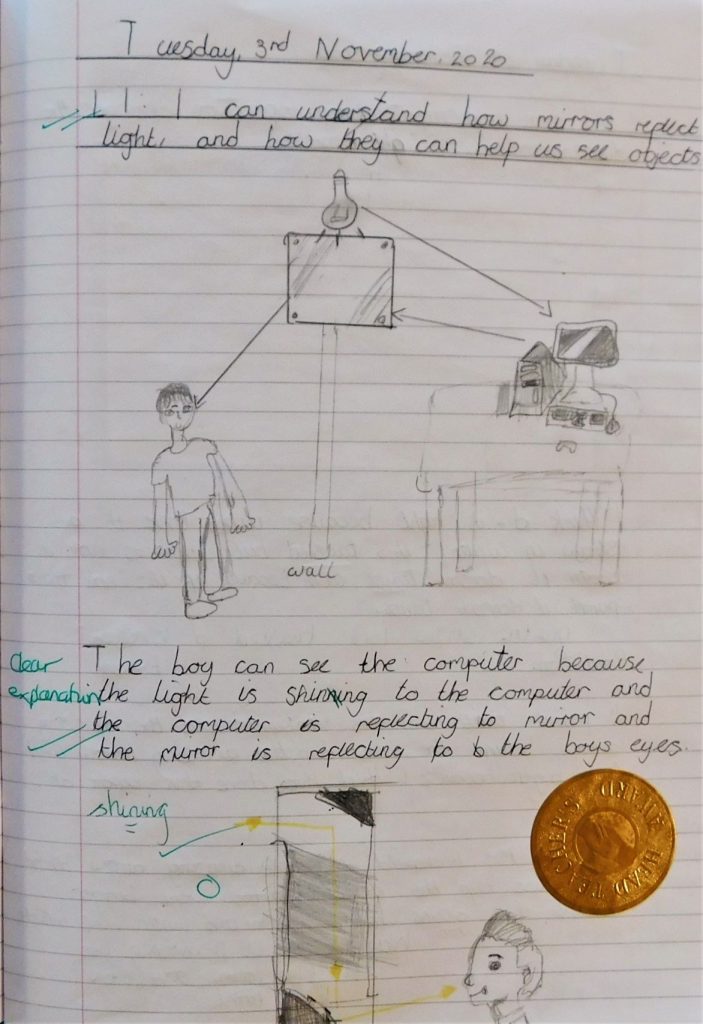 Tuesday, 3rd November, 2020
LI: I can understand how mirrors reflect
light, and how they can help us see objects
wall
clear
explanation
The boy can see the computer because
the light is shinning to the computer and
the computer is reflecting to mirror and
the mirror is reflecting to the boys eyes.
shining
HEAD TEACHER'S AWARD